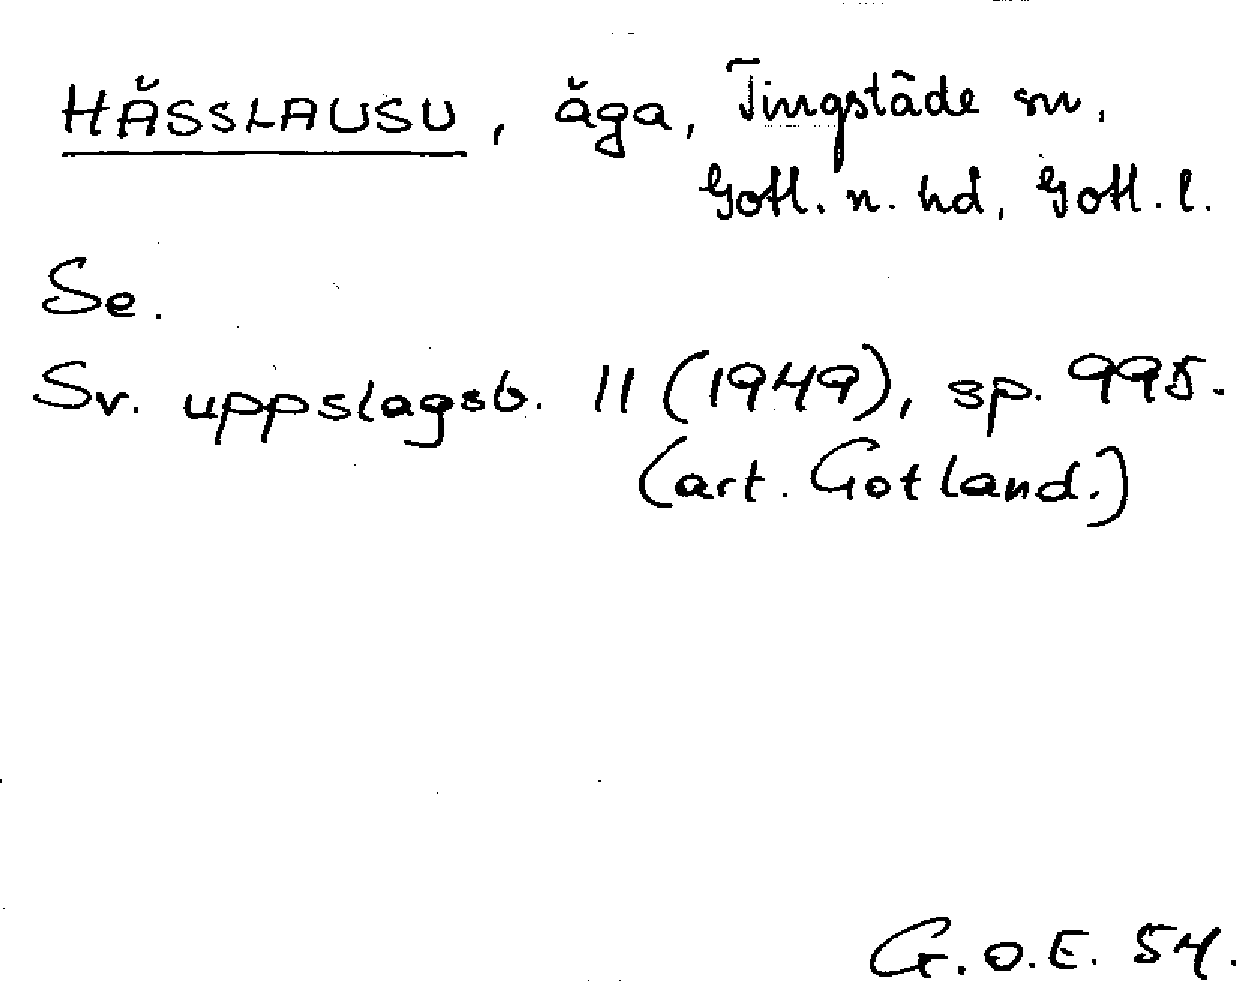 HÄSSLAUSU, äga, Tingstäde sn,
Gotl. n. hd, Gotl. l.
Se.
Sv. uppslagsb. 11 (1949), sp. 995.
(art. Gotland.)
G.O.E. 54.